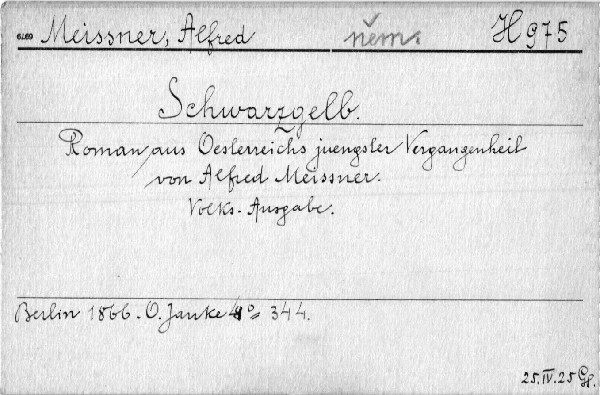 Meissner, Alfred něm. H 975
Schwarzgelb.
Roman aus Oesterreichs juengster Vergangenheit
von Alfred Meissner.
Volks-Ausgabe.
Berlin 1866. O. Janke 4° 344.
25.IV.25